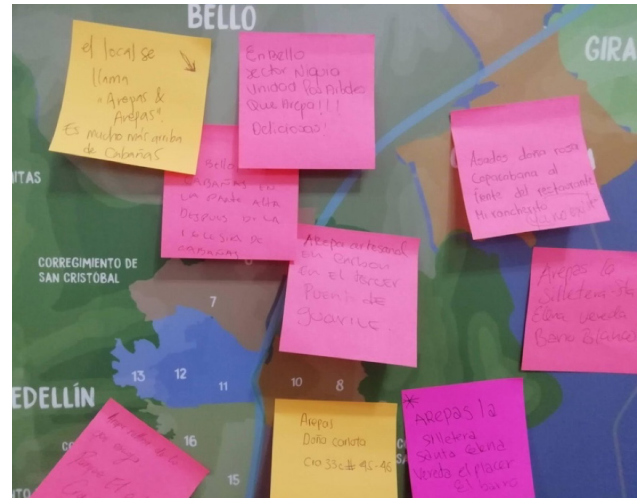 BELLO
GIRA
el local se
llama
"Arepas &
Arepas".
Es mucho más arriba
de Cabañas
En Bello
sector Niquia
Unidad
Que Arepa!!!
Deliciosas!
Bello
CABAÑAS EN
LA PARTE ALTA
DESPUES DE LA
IGLESIA DE
CABAÑAS
Asados doña rosa
Copacabana al
frente del restaurante
Mi ranchito
ITAS
CORREGIMIENTO DE
SAN CRISTÓBAL
Arepa artesanal
en Carbon
En el tercer
Puente de
Guarne
Arepas la
Silletera
Elena vereda
Barro Blanco
7
13
12
11
10
8
EDELLÍN
16
15
Arepas
Doña carlota
Cra 33c # 45-45
*
AREPAS la
silletera
santa Elena
Vereda el placer
El barro